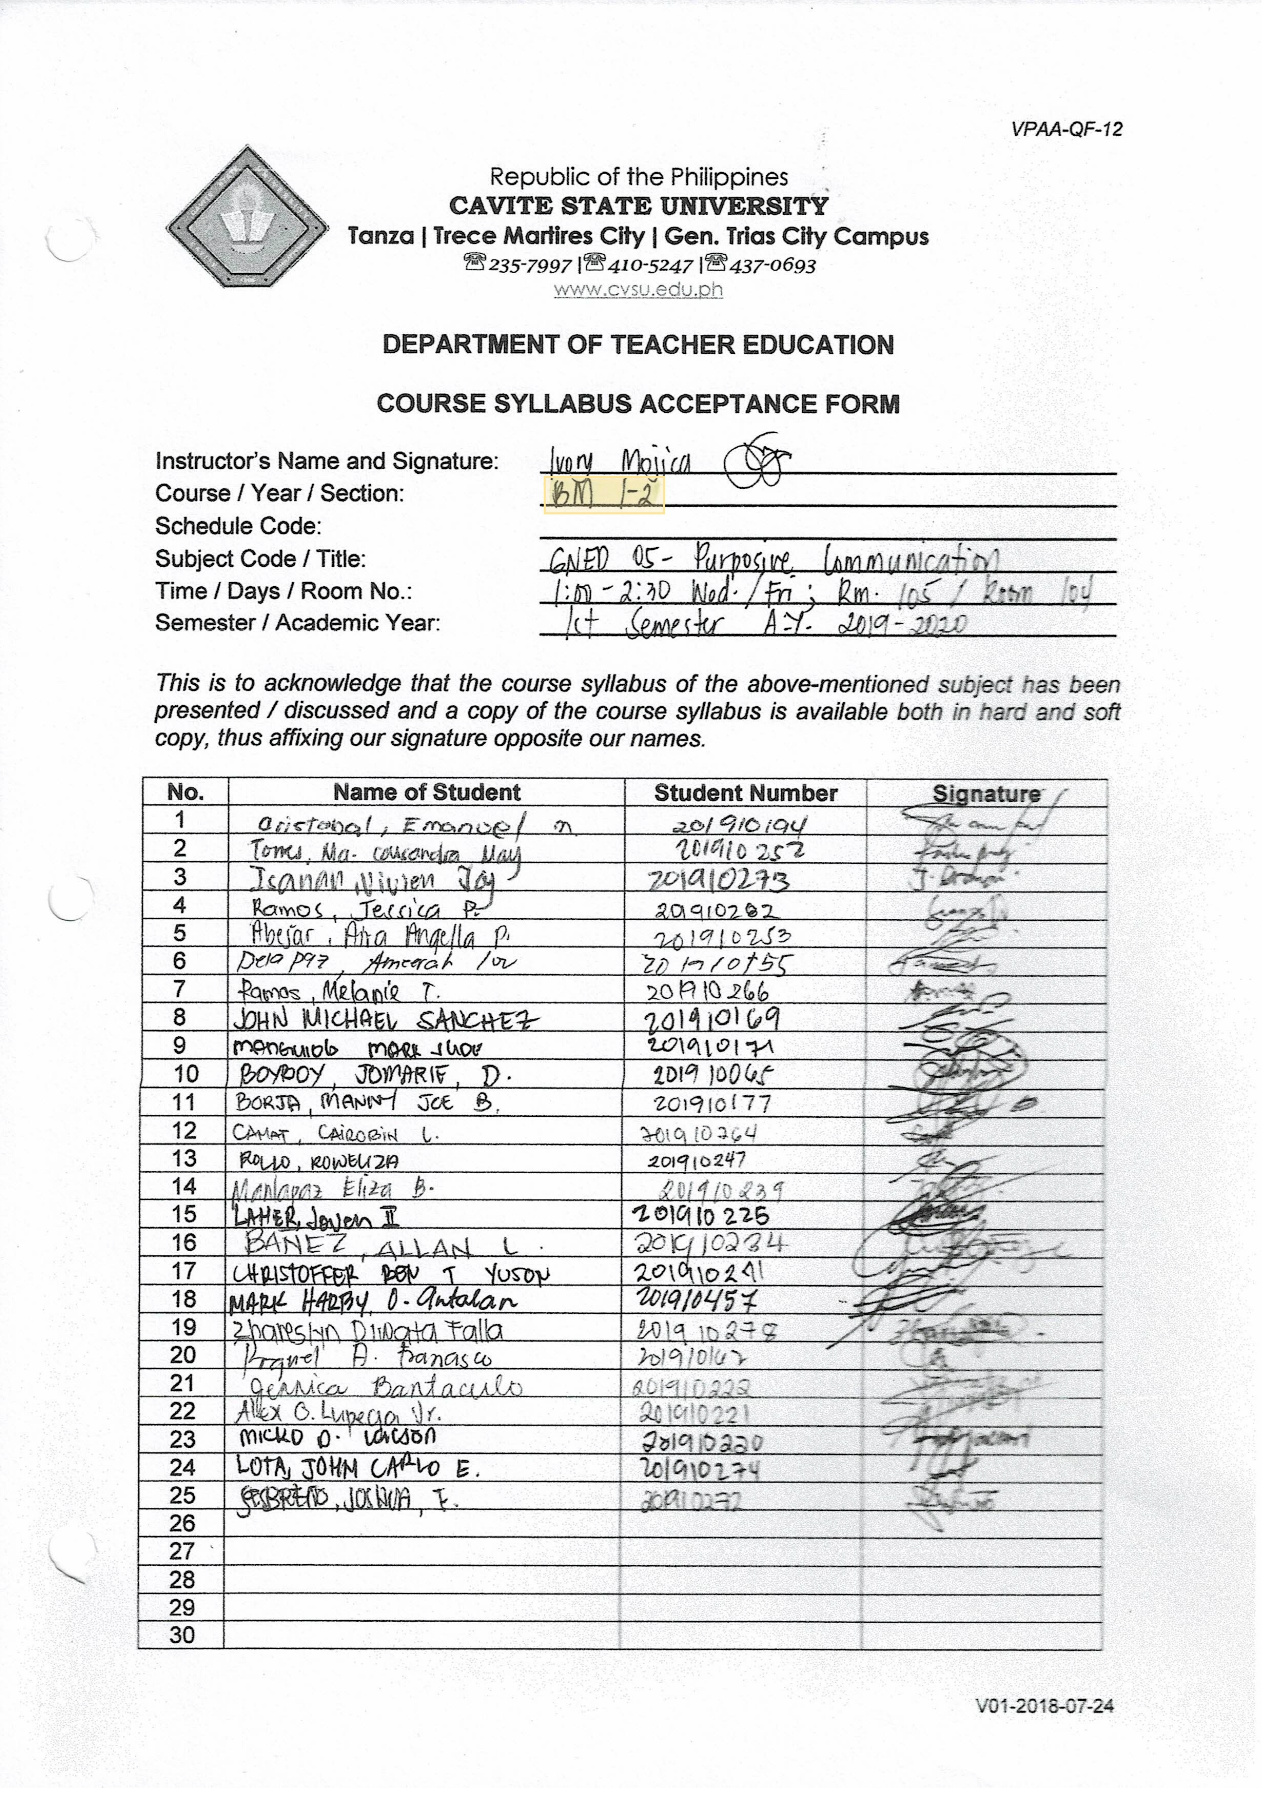 VPAA-QF-12
Republic of the Philippines
CAVITE STATE UNIVERSITY
Tanza | Trece Martires City | Gen. Trias City Campus
☎235-7997 |☎410-5247 |☎437-0693
www.cvsu.edu.ph
DEPARTMENT OF TEACHER EDUCATION
COURSE SYLLABUS ACCEPTANCE FORM
Instructor's Name and Signature: Ivory Mojica
Course / Year / Section: BM 1-2
Schedule Code:
Subject Code / Title: GNED 05- Purposive Communication
Time / Days / Room No.: 1:00-2:30 Wed. / Fri ; Rm. 105 / Room 104
Semester / Academic Year: 1st Semester A.Y. 2019-2020
This is to acknowledge that the course syllabus of the above-mentioned subject has been
presented / discussed and a copy of the course syllabus is available both in hard and soft
copy, thus affixing our signature opposite our names.
No. Name of Student Student Number Signature
1 Cristobal, Emanuel 201910194
2 Torres, Ma. Cassandra May 201910252
3 Isanan, Vivien Joy 201910273
4 Ramos, Jessica P. 201910282
5 Abejar, Aira Angella P. 201910253
6 Dela paz, Ameerah
7 Ramos, Melanie T. 201910266
8 JOHN MICHAEL SANCHEZ 201910169
9 MANGUIOB MARK JUDE 201910171
10 BOYBOY, JOMARIE, D. 201910065
11 BORJA, MANNY JOE B. 201910177
12 CAMAT, CAIROBIN L. 201910264
13 ROLLO, ROWELIZA 201910247
14 Manlapaz Eliza B. 201910239
15 LAHER, Joven II 201910225
16 BAÑEZ, ALLAN L. 201910234
17 CHRISTOFFER BEN T YUSON 201910241
18 MARK HARBY O. Antalan 201910457
19 Zhareslyn Diwata Falla 201910278
20 A. 201910162
21 Gennica Bantaculo 201910222
22 Alex O. Lupega Jr. 201910221
23 MICKO D. 201910220
24 LOTA, JOHN CARLO E. 201910274
25 SESBREÑO, JOSHUA, F. 201910272
26
27
28
29
30
V01-2018-07-24